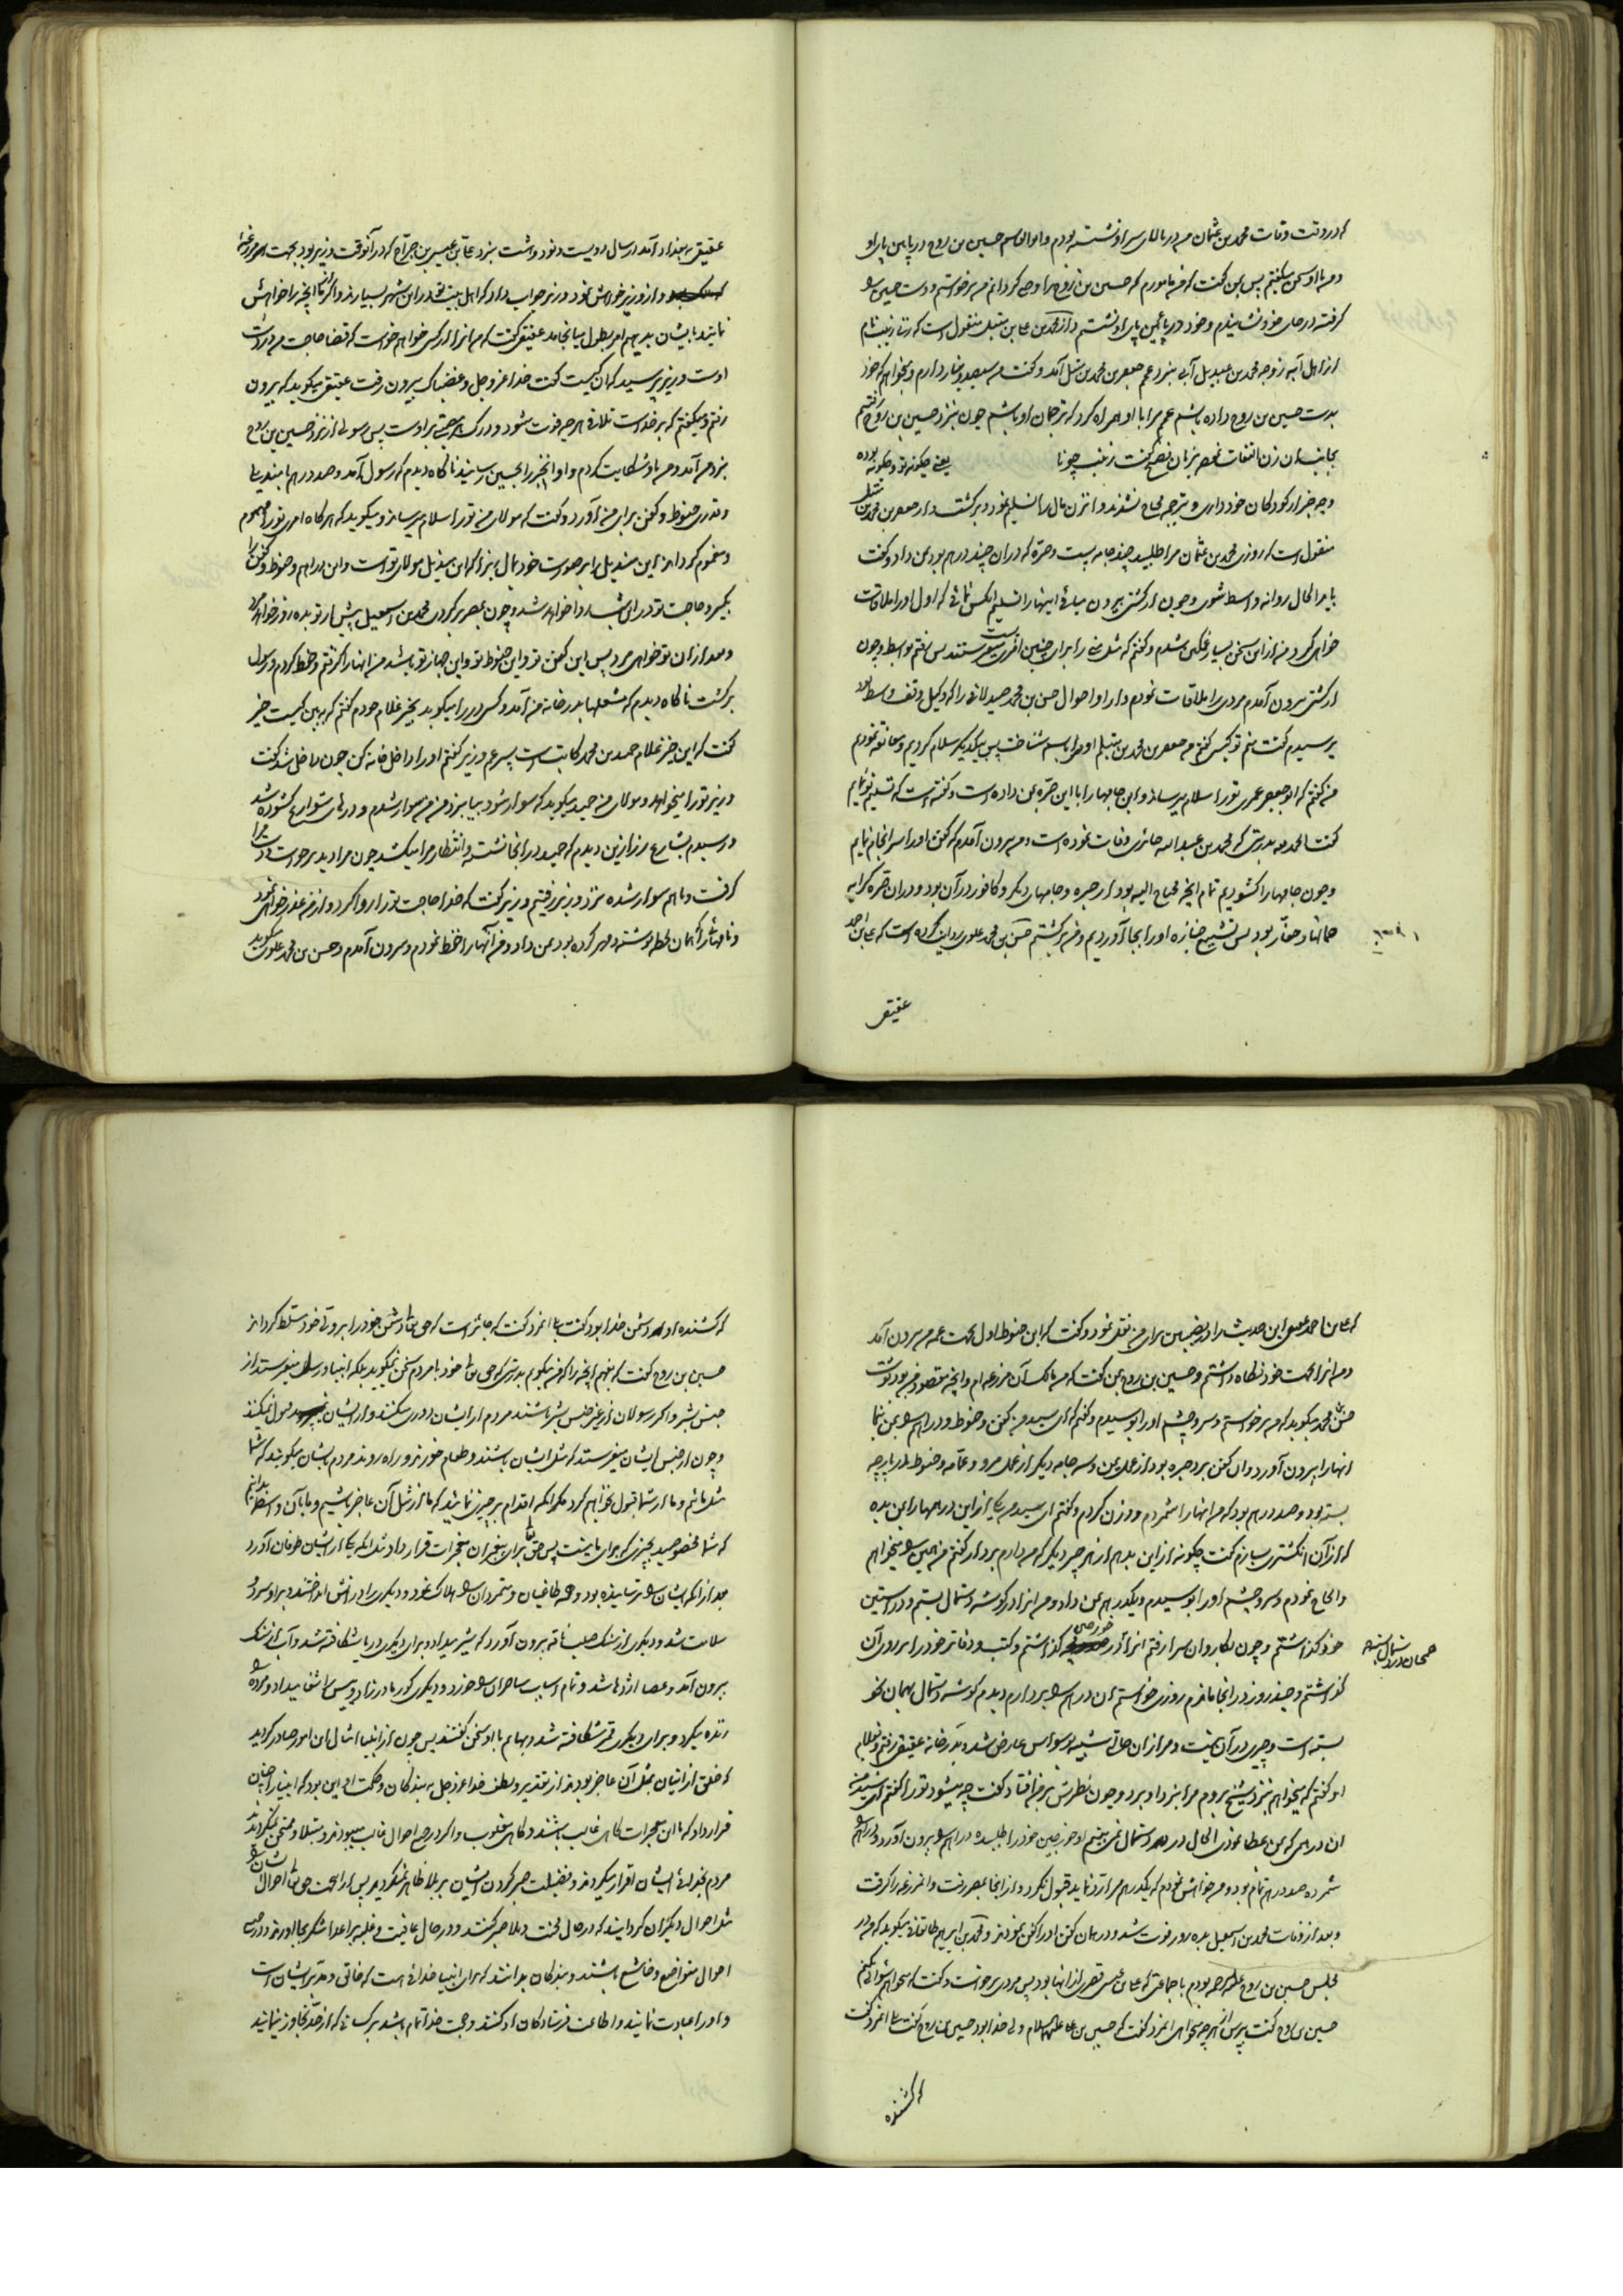 که در وقت وفات محمد بن عثمان من در بالای سر او نشسته بودم و ابوالقاسم حسین بن روح در پایین پای او
و من با او سخن میگفتم پس بمن گفت که من مامورم که حسین بن روح را وصی گردانم من برخواستم و دست حسین را
گرفته در جای خود نشانیدم و خود در پائین پای او نشستم و از محمد بن علی بن متیل منقول است که زنی زینب نام
از اهل آبه زوجه محمد بن عبدیل آبی نزد عمم جعفر بن محمد بن متیل آمد و گفت من سیصد دینار دارم و میخواهم که خود
بدست حسین بن روح داده باشم عمم مرا با او همراه کرد که ترجمان او باشم چون نزد حسین بن روح رفتیم
بجانب آن زن التفات نمود بزبان فصیح گفت زینب چونا یعنی چگونه و چگونه بوده
و چه خبر از کودکان خود داری و بترجمه محتاج نشدند و آن زن مال را تسلیم نمود و برگشت و از جعفر بن محمد بن متیل
منقول است که روزی محمد بن عثمان مرا طلبید چند جامه بست و صره که در آن چند درهم بود بمن داد و گفت
باید الحال روانه واسط شوی و چون از کشتی بیرون میائی اینها را تسلیم آنکس نمائی که اول او را ملاقات
خواهی کرد من از این سخن بسیار غمگین شدم و گفتم که مثل منی را برای چنین امری میفرستند پس رفتم بواسط و چون
از کشتی بیرون آمدم مردی را ملاقات نمودم و از او احوال حسن بن محمد صیدلانی را که وکیل وقف واسط بود
پرسیدم گفت منم تو کیستی گفتم من جعفر بن محمد بن متیلم او مرا باسم شناخت پس بیکدیگر سلام کردیم و معانقه نمودیم
من گفتم که ابو جعفر عمری تو را سلام میرساند و این جامها را با این صره بمن داده است و گفته است که تسلیم تو نمایم
گفت الحمد لله بدرستی که محمد بن عبد الله حائری وفات نموده است و من بیرون آمدم که کفن او را سرانجام نمایم
و چون جامها را گشودیم تمام آنچه محتاج الیه بود از حبره و جامهای دیگر و کافور در آن بود و در آن صره کرایه
حمالها و حفار بود پس تشییع جنازه او را بجا آوردیم و من برگشتم حسن بن محمد علوی روایت کرده است که علی بن احمد
عقیقی
عقیقی ببغداد آمد در سال دویست و نود و هشت بنزد علی بن عیسی بن جراح که در آنوقت وزیر بود بجهت امر مزرعهٔ
و از وزیر خواهش نمود وزیر جواب داد که اهل بیت تو در این شهر بسیارند و اگر تمام آنچه را خواهش
نمایند بایشان بدهیم امر بطول میانجامد عقیقی گفت که من آنرا از کسی خواهم خواست که قضاء حاجت من در دست
اوست وزیر پرسید که آن کیست گفت خدا عز و جل و غضبناک بیرون رفت عقیقی میگوید که بیرون
رفتم و میگفتم که بر خداست تلافی هر چه فوت شود و درک هر مصیبتی بر اوست پس رسولی از نزد حسین بن روح
بنزد من آمد و من باو شکایت کردم و او این خبر را بحسین رسانید ناگاه دیدم که رسول آمد و صد درهم با مندیلی
و قدری حنوط و کفن برای من آورد و گفت که مولای من تو را سلام میرساند و میگوید که هر گاه امری تو را مهموم
و مغموم گرداند این مندیل را بر صورت خود بمال زیرا که این مندیل مولای تو است و این دراهم و حنوط و کفن را
بگیر و حاجت تو در این شب روا خواهد شد و چون بمصر برگردی محمد بن اسمعیل پیش از تو بده روز خواهد مرد
و بعد از آن تو خواهی مرد پس این کفن تو و این حنوط تو و این جهاز تو باشد من آنها را گرفتم و حفظ کردم و رسول
برگشت ناگاه دیدم که مشعلها بدر خانه من آمد و کسی در را میکوبد بخیر غلام خودم گفتم که ببین کیست خیر
گفت که این خیر غلام حمید بن محمد کاتب است پسر عم وزیر گفتم او را داخل خانه کن چون داخل شد گفت
وزیر تو را میخواهد و مولای من حمید میگوید که سوار شود بیا بنزد من من سوار شدم و درهای شوارع گشوده شد
و رسیدم بشارع رزازین دیدم که حمید در آنجا نشسته و انتظار مرا میکشد چون مرا دید برخواست و دست مرا
گرفت و باهم سوار شده نزد وزیر رفتیم وزیر گفت که خدا حاجت تو را روا کرد و از من عذر خواهی نمود
و نامها را که بآن خط نوشته و مهر کرده بود بمن داد و من آنها را اخذ نمودم و بیرون آمدم و حسن بن محمد علوی میگوید
که علی بن احمد عقیقی این حدیث را در نصیبین برای من نقل نمود و گفت که این حنوط اول بجهت عمه من بیرون آمد
و من آنرا بجهت خود نگاه داشتم و حسین بن روح بمن گفت که من مالک آن مزرعه ام و آنچه مقصود من بود نوشت
حسن بن محمد میگوید که من برخواستم و سر و چشم او را بوسیدم و گفتم که ای سید من کفن و حنوط و دراهم را بمن بنما
آنها را بیرون آورد و آن کفن برد حبره بود از عمل یمن و سه جامه دیگر از عمل مرو و عمامه و حنوط در پارچه
بسته بود و صد درهم بود که من آنها را شمردم و وزن کردم و گفتم ای سید من یکی از این درهمها را بمن بده
که از آن انگشتری بسازم گفت چگونه از این بدهم از هر چیز دیگر که من دارم بردار گفتم من همین را میخواهم
و الحاح نمودم و سر و چشم او را بوسیدم و یکدرهم بمن داد و من آنرا در گوشه دستمال بستم و در آستین
خود گذاشتم و چون بکاروان سرا رفتم آنرا در خورجین گذاشتم و کتب و دفاتر خود را بر روی آن
گذاشتم و چند روز در آنجا ماندم روزی خواستم آن درهم را بردارم دیدم گوشه دستمال بهمان نحو
بسته است و چیزی در آن نیست و مرا از آن حالتی شبیه بوسواس عارض شد و بدر خانه عقیقی رفتم و بغلام
او گفتم که میخواهم بنزد شیخ بروم مرا بنزد او برد و چون نظرش بر من افتاد گفت چه میشود تو را گفتم ای سید من
آن درهمی که بمن عطا نمودی الحال در دستمال نمی بینم او خورجین خود را طلبیده دراهم را بیرون آورد
شمرده صد درهم تمام بود و من خواهش نمودم که یکدرهم مرا رد نماید قبول نکرد و از آنجا بمصر رفت و آنمزرعه را گرفت
و بعد از وفات محمد بن اسمعیل بده روز فوت شد و در همان کفن او را کفن نمودند و محمد بن ابراهیم طالقانی میگوید که من در
مجلس حسین بن روح بودم با جماعتی که علی بن عیسی قصری از آنها بود پس مردی برخواست و گفت میخواهم سؤالی بکنم
حسین بن روح گفت بپرس از هر چه میخواهی آنمرد گفت که حسین بن علی علیهما السلام ولی خدا بود حسین بن روح گفت بلی آنمرد گفت
که کشنده
که کشنده او دشمن خدا بود گفت بلی آنمرد گفت که جائز است که حق تعالی دشمن خود را بر ولی خود مسلط گرداند
حسین بن روح گفت که بفهم آنچه را که من میگویم بدرستی که حق تعالی خود با مردم سخن نمیگوید بلکه انبیا و رسل میفرستد از
جنس بشر و اگر رسولان از غیر جنس بشر باشند مردم از ایشان دوری میکنند و از ایشان قبول نمیکنند
و چون از جنس ایشان میفرستد که مثل ایشان باشند و طعام خورند و راه روند مردم بایشان میگویند که شما
مثل مائید و ما از شما قبول نخواهیم کرد مگر آنکه اقدام بر چیزی نمائید که ما از مثل آن عاجز باشیم و ما بآن واسطه بدانیم
که شما مخصوصید بچیزی که برای ما نیست پس حق تعالی برای پیغمبران معجزات قرار داد بدانکه یکی از ایشان طوفان آورد
بعد از آنکه ایشان را ترسانیده بود و همه طاغیان و متمردان را هلاک نمود و دیگری را در آتش انداختند و بر او سرد و
سلامت شد و دیگری از سنگ صلب ناقه بیرون آورد که شیر میداد و برای دیگری دریا شکافته شد و آب از سنگ
بیرون آمد و عصا اژدها شد و تمام اسباب ساحران را خورد و دیگری کور مادرزاد و پیس را شفا میداد و مرده را
زنده میکرد و برای دیگری قمر شکافته شد و بهایم با او سخن گفتند پس چون از انبیا امثال این امور صادر گردید
که خلق از اتیان بمثل آن عاجز بودند از تقدیر و لطف خدا عز و جل به بندگان و حکمت او این بود که انبیا را چنان
قرار داد که با این معجزات گاهی غالب باشند و گاهی مغلوب و اگر در جمیع احوال غالب میبودند و مبتلا و ممتحن نمیگردیدند
مردم بخدائی ایشان اقرار میکردند و فضیلت صبر کردن ایشان بر بلا ظاهر نمیگردید پس از این جهت حق تعالی احوال ایشان را
مثل احوال دیگران گردانید که در حال محنت و بلا صبر کنند و در حال عافیت و غلبه بر اعدا شکر بجا آورند و در جمیع
احوال متواضع و خاشع باشند و بندگان بدانند که برای انبیا خدائی است که خالق و مدبر ایشان است
و او را عبادت نمایند و اطاعت فرستادگان او کنند و حجت خدا تمام باشد بر کسانی که از حد تجاوز نمایند